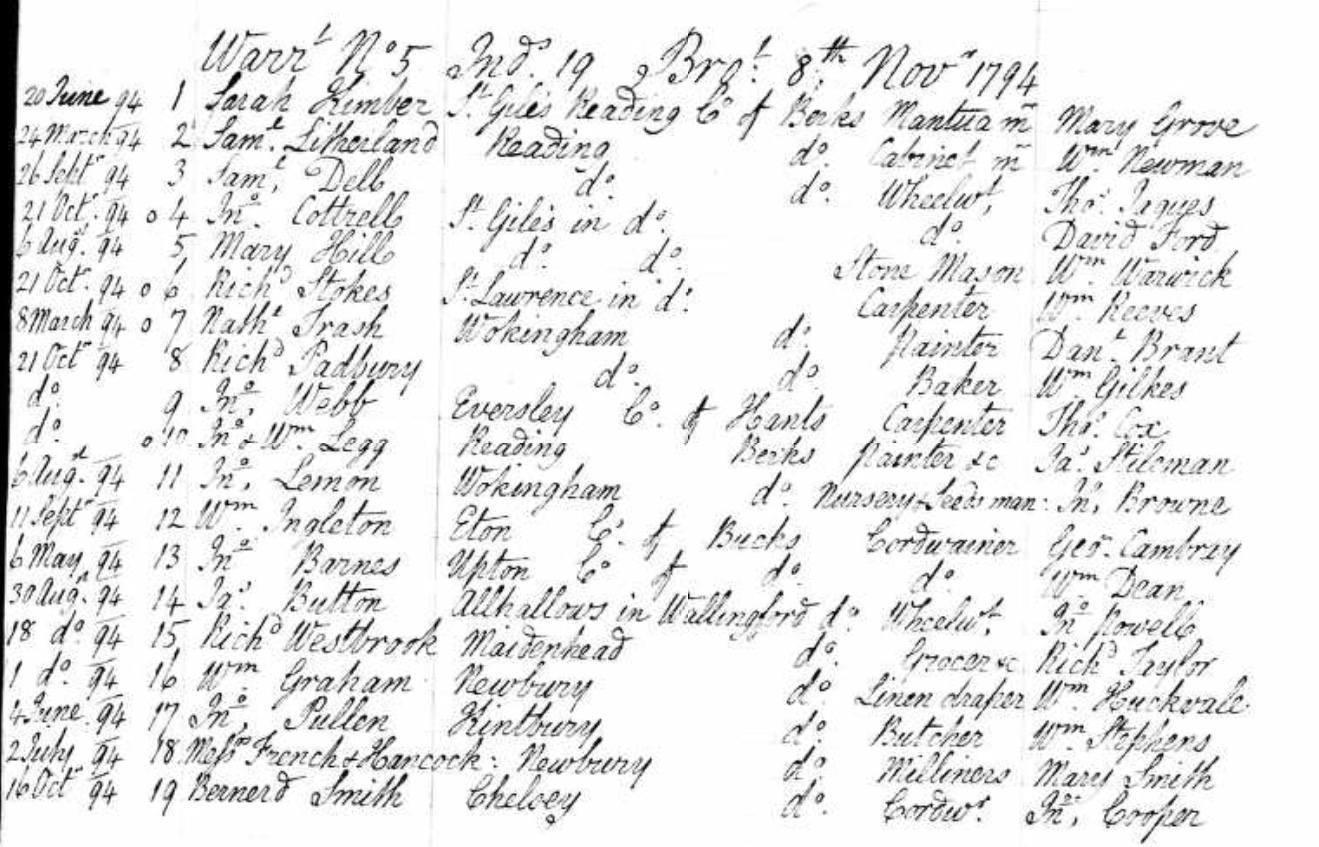 Warrt No 5 Inds 19 Brot 8th Novr 1794
20 June 94 1 Sarah Kimber St Giles Reading Co of Berks Mantua mr Mary Grove
24 March 94 2 Saml. Litherland Reading do. Cabinet mr Wm Newman
26 Sept 94 3 Saml. Dell do. do. Wheelwt. Thos. Jaques
21 Octr. 94 o 4 Jno. Cottrell St. Giles in do. do. David Ford
6 Augt. 94 5 Mary Hill do. do. Stone Mason Wm Warwick
21 Octr. 94 o 6 Richd Stokes St. Lawrence in do. Carpenter Wm Reeves
8 March 94 o 7 Nathl Trash Wokingham do. Painter Danl. Brant
21 Octr 94 8 Richd Padbury do. do. Baker Wm Gilkes
do. 9 Jno. Webb Eversley Co. of Hants Carpenter Thos. Cox
do. o 10 Jno & Wm. Legg Reading Berks Painter &c Jas. Stileman
6 Augt. 94 11 Jno. Lemon Wokingham do. Nursery & Seedsman: Jno. Browne
11 Sept 94 12 Wm. Ingleton Eton Co. of Bucks Cordwainer Geo. Cambray
6 May 94 13 Jno Barnes Upton Co of do. do. Wm Dean
30 Augt. 94 14 Jas. Button Allhallows in Wallingford do. Wheelwt. Jno Powell
18 do. 94 15 Richd Westbrook Maidenhead do. Grocer &c Richd Taylor
1 do. 94 16 Wm. Graham Newbury do. Linen draper Wm. Huckvale
4 June. 94 17 Jno. Pullen Kintbury do. Butcher Wm. Stephens
2 July 94 18 Messrs French & Hancock: Newbury do. Milliners Mary Smith
16 Octr 94 19 Bernerd Smith Cholsey do. Cordwr. Jno. Cooper